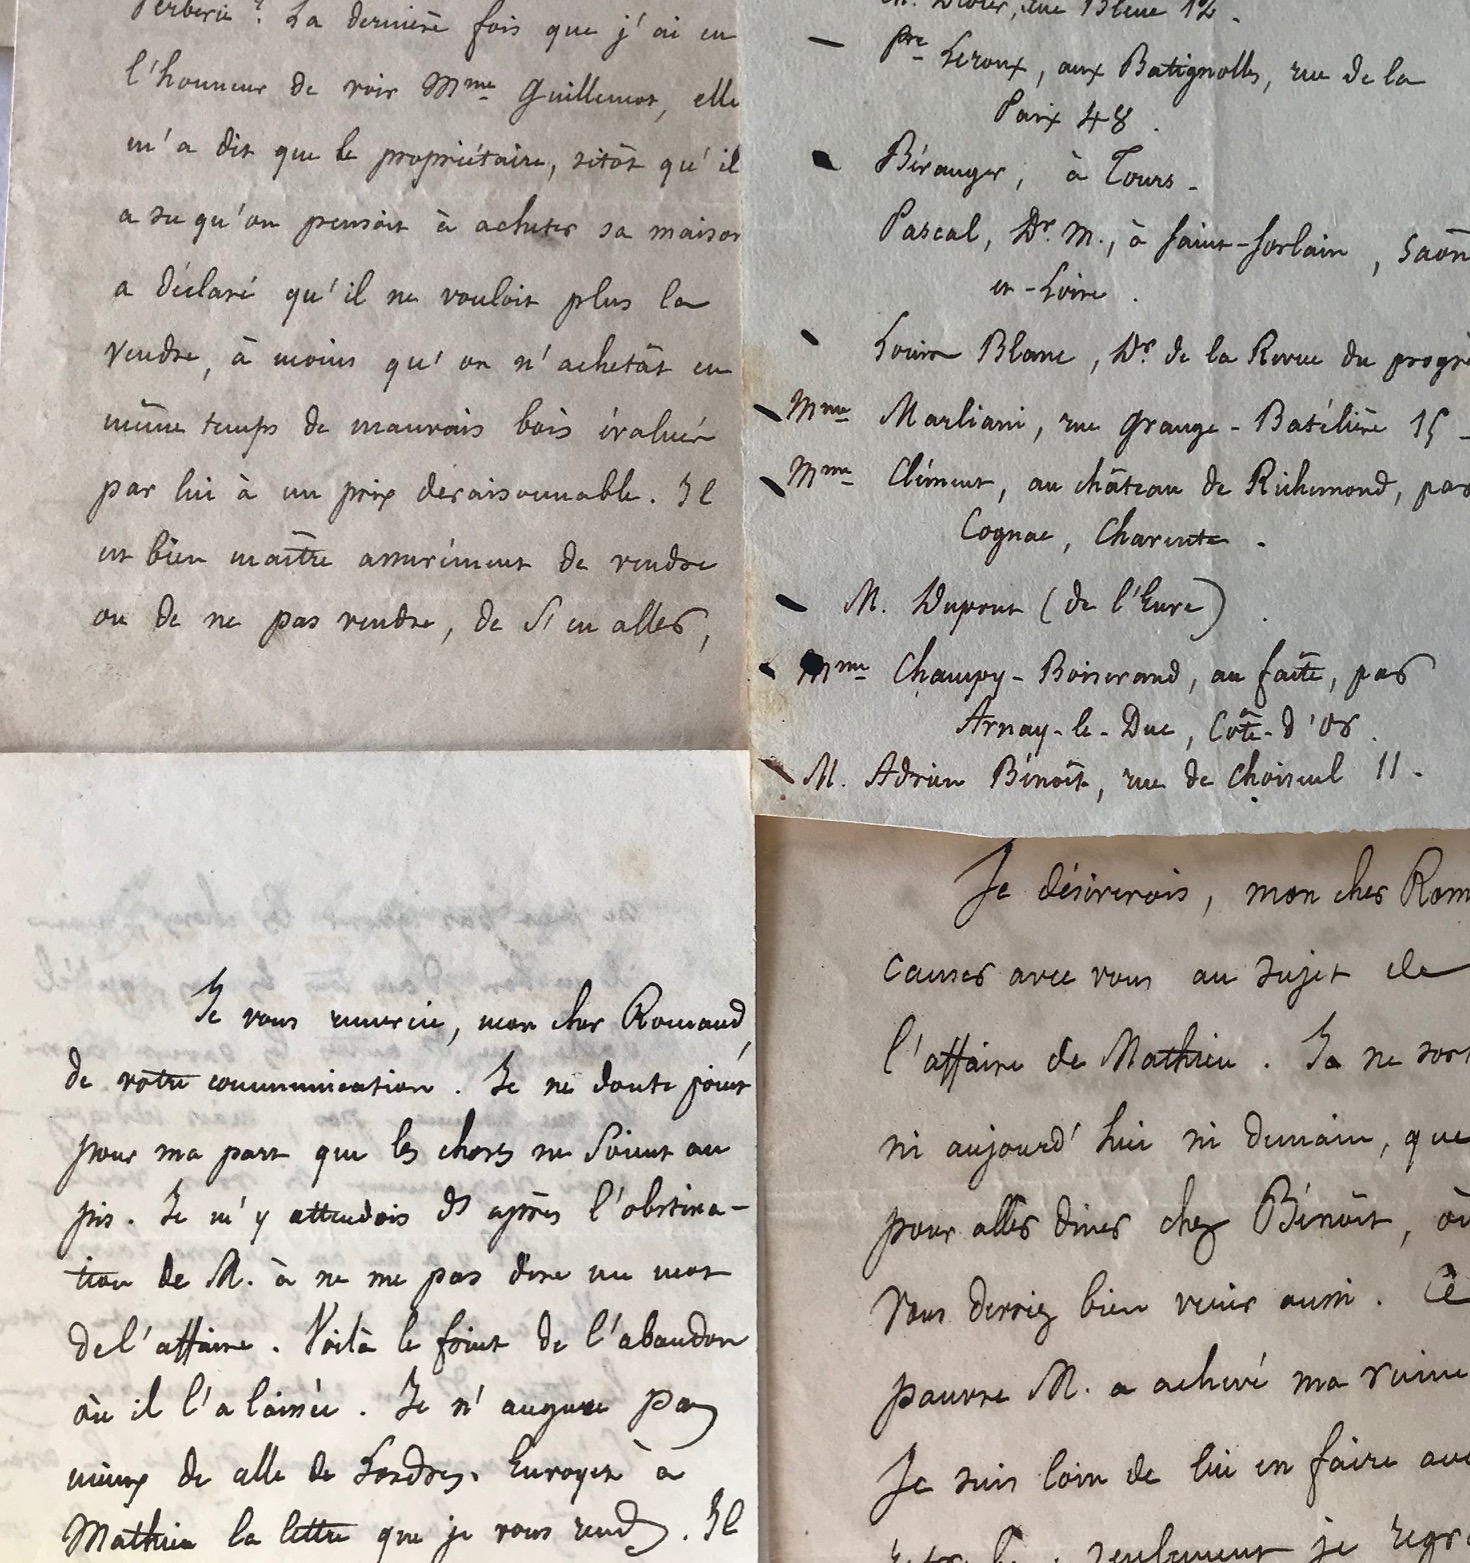 ? La dernière fois que j'ai eu
l'honneur de voir Mme Guillemot, elle
m'a dit que le propriétaire, sitôt qu'il
a su qu'on pensoit à acheter sa maison
a déclaré qu'il ne vouloit plus la
vendre, à moins qu'on n'achetât en
même temps de mauvais bois évalués
par lui à un prix déraisonnable. Il
est bien maître assurément de vendre
ou de ne pas vendre, de s'en aller,
rue Bleue 12.
Pre Leroux, aux Batignolles, rue de la
Paix 48.
Béranger, à Tours.
Pascal, Dr. M., à Saint-Sorlain, Saône
et-Loire.
Louis Blanc, Dr de la Revue du progrès
Mme Marliani, rue Grange-Batélière 15
Mme Clément, au château de Richemond, par
Cognac, Charente.
M. Dupont (de l'Eure)
Mme Champy-Boiserand, au faîte, par
Arnay-le-Duc, Côte-d'Or.
M. Adrien Bénoît, rue de Choiseul 11.
Je vous remercie, mon cher Romand,
de votre communication. Je ne doute point
pour ma part que les choses ne soient au
pis. Je m'y attendois après l'obstina-
tion de M. à ne me pas dire un mot
de l'affaire. Voilà le fruit de l'abandon
où il l'a laissée. Je n'augure pas
mieux de celle de Londres. Envoyez à
Mathieu la lettre que je vous rends. Il
Je désirerois, mon cher Rom
causer avec vous au sujet de
l'affaire de Mathieu. Je ne sors
ni aujourd'hui ni demain, que
pour aller dîner chez Bénoît, où
vous devriez bien venir aussi. Ce
pauvre M. a achevé ma ruine
Je suis loin de lui en faire aucun
seulement je